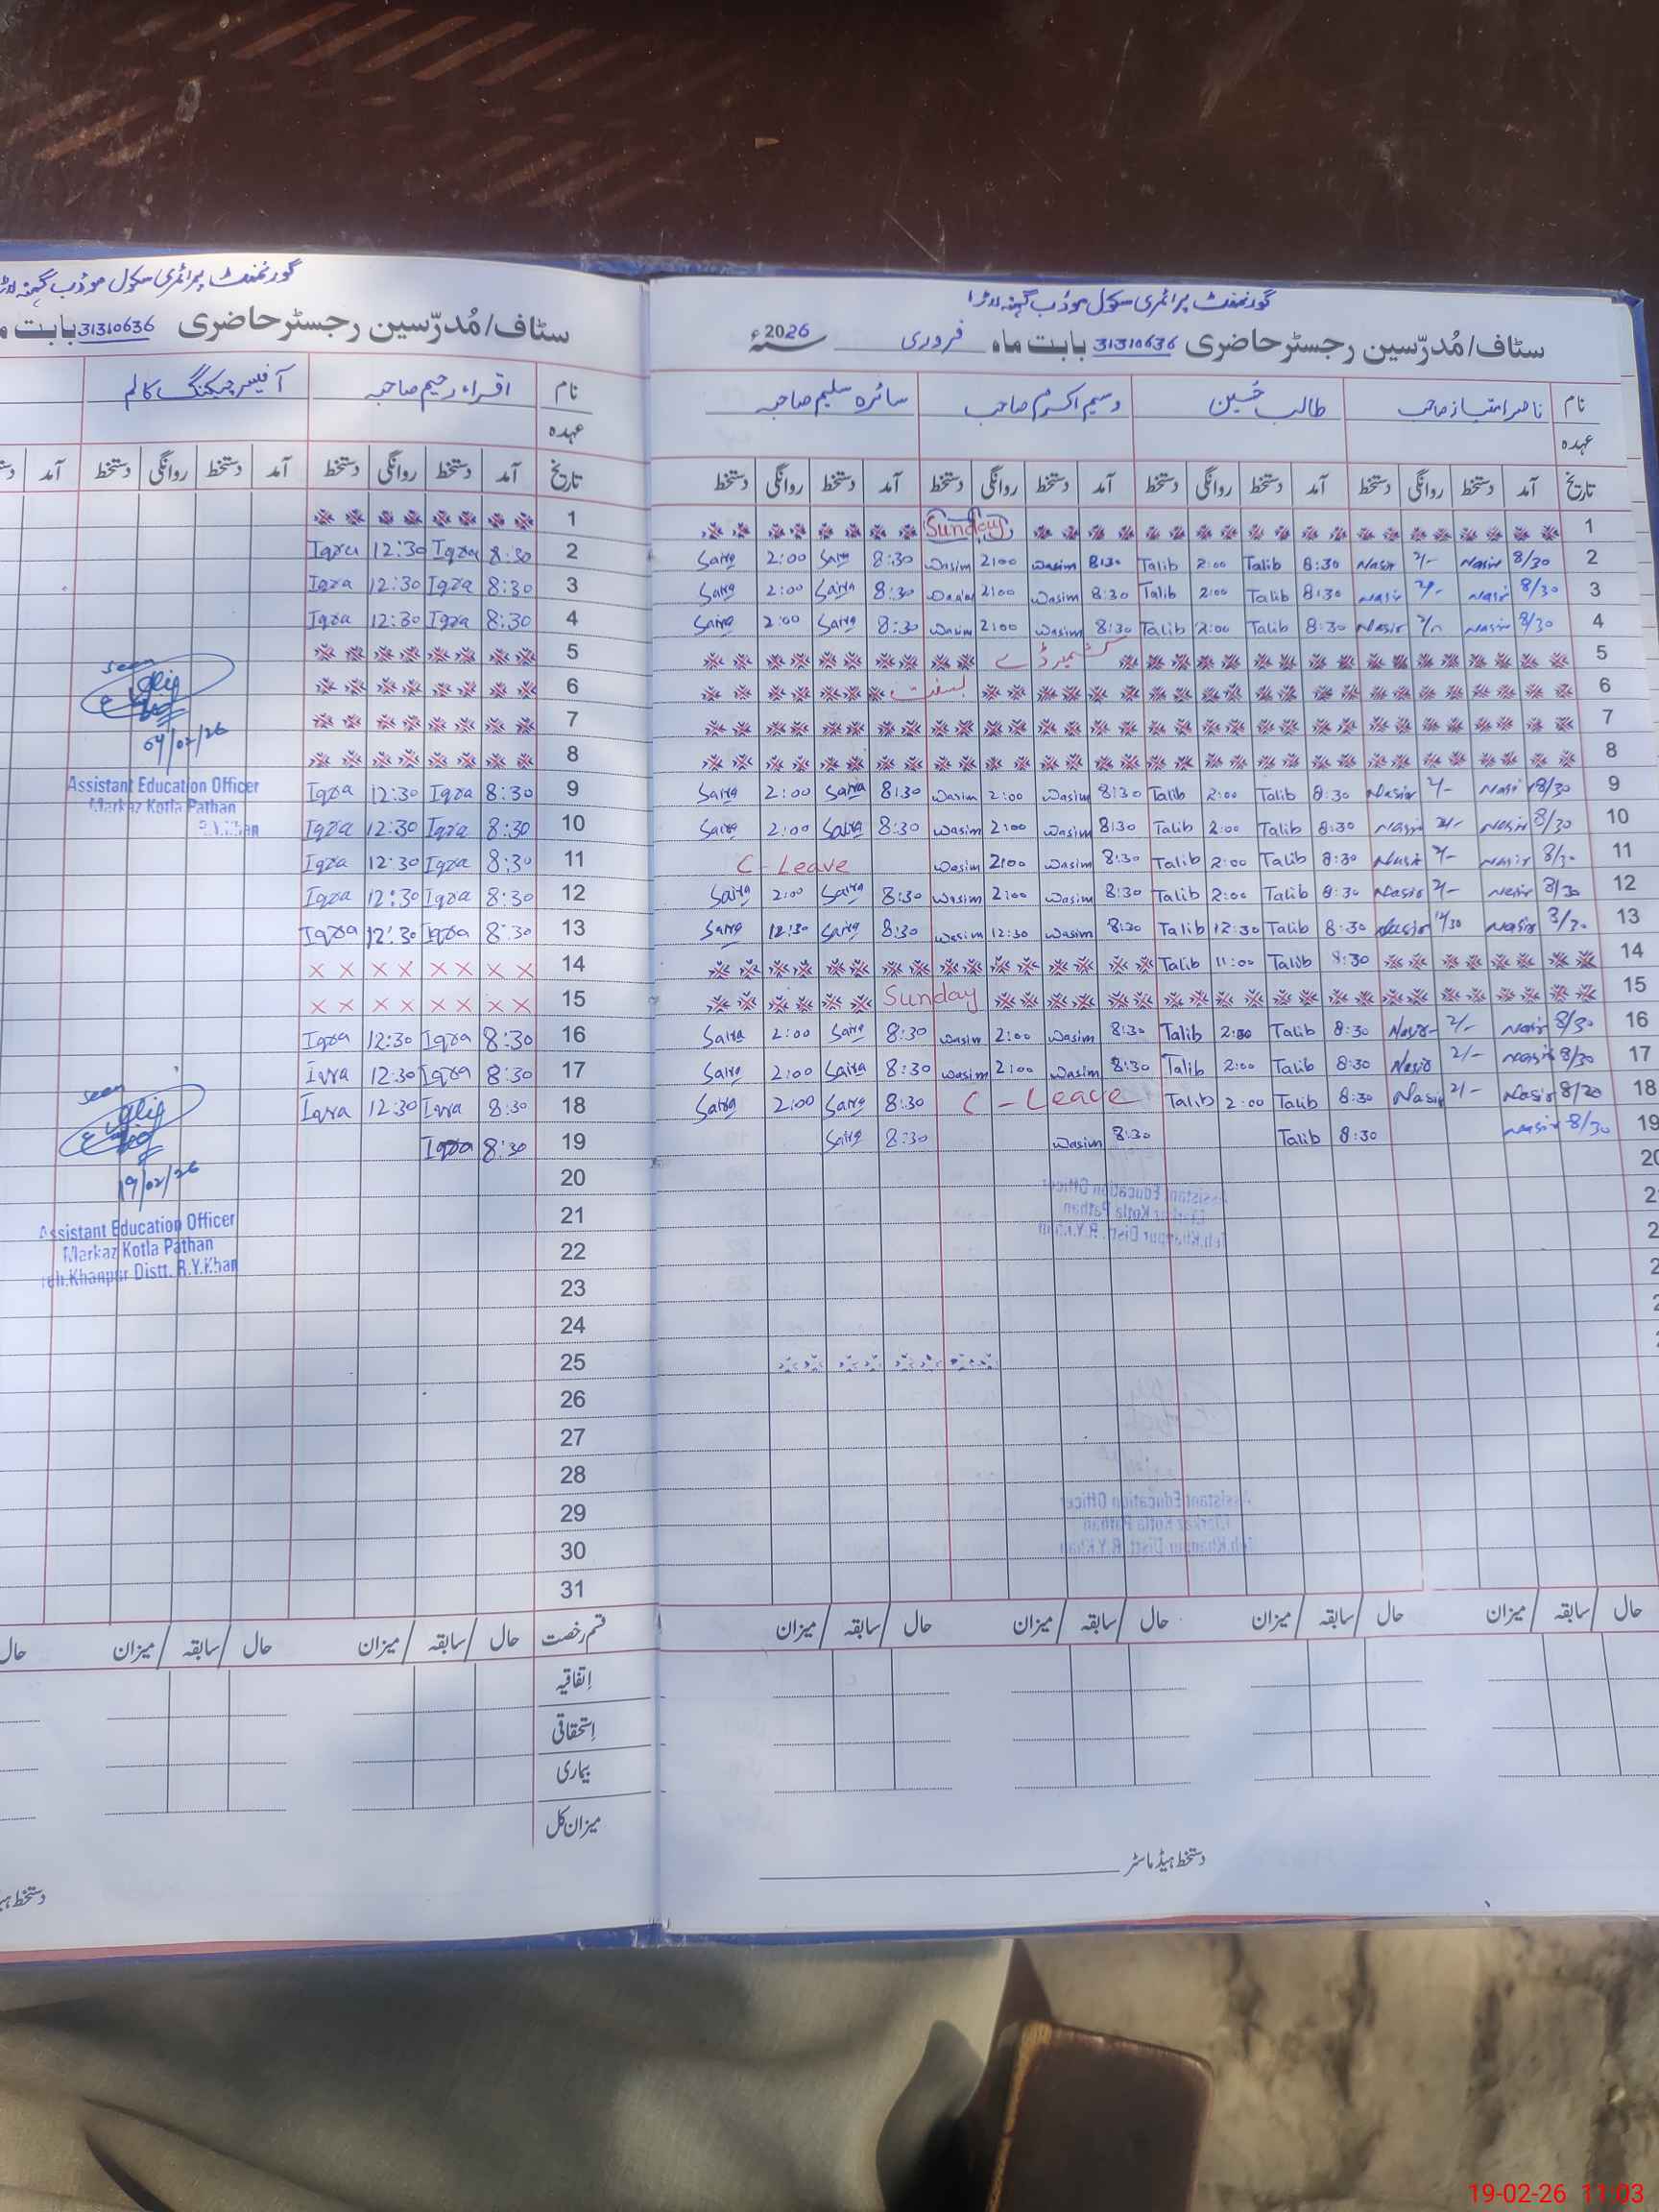 گورنمنٹ پرائمری سکول
سٹاف/مُدرّسین رجسٹر حاضری 31310636 بابت ماہ فروری سنہ 2026ء
نام ناصر امتیاز صاحب طالب حُسین وسیم اکرم صاحب سائرہ سلیم صاحبہ
عہدہ
تاریخ آمد دستخط روانگی دستخط آمد دستخط روانگی دستخط آمد دستخط روانگی دستخط آمد دستخط روانگی دستخط
1 Sunday
2 8/30 Nasir 2/- Nasir 8:30 Talib 2:00 Talib 8:30 Wasim 2:00 Wasim 8:30 Saira 2:00 Saira
3 8/30 Nasir 2/- Nasir 8:30 Talib 2:00 Talib 8:30 Wasim 2:00 Wasim 8:30 Saira 2:00 Saira
4 8/30 Nasir 2/- Nasir 8:30 Talib 2:00 Talib 8:30 Wasim 2:00 Wasim 8:30 Saira 2:00 Saira
5 کشمیر ڈے
6 بسنت
7
8
9 8/30 Nasir 2/- Nasir 8:30 Talib 2:00 Talib 8:30 Wasim 2:00 Wasim 8:30 Saira 2:00 Saira
10 8/30 Nasir 2/- Nasir 8:30 Talib 2:00 Talib 8:30 Wasim 2:00 Wasim 8:30 Saira 2:00 Saira
11 8/30 Nasir 2/- Nasir 8:30 Talib 2:00 Talib 8:30 Wasim 2:00 Wasim C-Leave
12 8/30 Nasir 2/- Nasir 8:30 Talib 2:00 Talib 8:30 Wasim 2:00 Wasim 8:30 Saira 2:00 Saira
13 Nasir 12/30 Nasir 8:30 Talib 12:30 Talib 8:30 Wasim 12:30 Wasim 8:30 Saira 12:30 Saira
14 8:30 Talib 11:00 Talib
15 Sunday
16 8/30 Nasir 2/- Nasir 8:30 Talib 2:00 Talib 8:30 Wasim 2:00 Wasim 8:30 Saira 2:00 Saira
17 8/30 Nasir 2/- Nasir 8:30 Talib 2:00 Talib 8:30 Wasim 2:00 Wasim 8:30 Saira 2:00 Saira
18 Nasir 2/- Nasir 8:30 Talib 2:00 Talib C-Leave 8:30 Saira 2:00 Saira
19 8/30 Nasir 8:30 Talib 8:30 Wasim 8:30 Saira
20
حال / سابقہ / میزان حال / سابقہ / میزان حال / سابقہ / میزان حال / سابقہ / میزان
دستخط ہیڈ ماسٹر
گورنمنٹ پرائمری سکول
سٹاف/مُدرّسین رجسٹر حاضری 31310636 بابت
نام اقراء رحیم صاحبہ آفیسر چیکنگ کالم
عہدہ
تاریخ آمد دستخط روانگی دستخط آمد دستخط روانگی دستخط آمد
1
2 8:30 Iqra 12:30 Iqra
3 8:30 Iqra 12:30 Iqra
4 8:30 Iqra 12:30 Iqra
5
6
7
8
9 8:30 Iqra 12:30 Iqra
10 8:30 Iqra 12:30 Iqra
11 8:30 Iqra 12:30 Iqra
12 8:30 Iqra 12:30 Iqra
13 8:30 Iqra 12:30 Iqra
14 × × × × × × × ×
15 × × × × × × × ×
16 8:30 Iqra 12:30 Iqra
17 8:30 Iqra 12:30 Iqra
18 8:30 Iqra 12:30 Iqra
19 8:30 Iqra
20
21
22
23
24
25
26
27
28
29
30
31
seen
04/02/26
Assistant Education Officer
Markaz Kotla Pathan
seen
19/02/26
Assistant Education Officer
Markaz Kotla Pathan
Teh.Khanpur Distt. R.Y.Khan
قسم رخصت حال / سابقہ / میزان حال / سابقہ / میزان حال
اِتفاقیہ
اِستحقاقی
بیماری
میزان کل
19-02-26 11:03